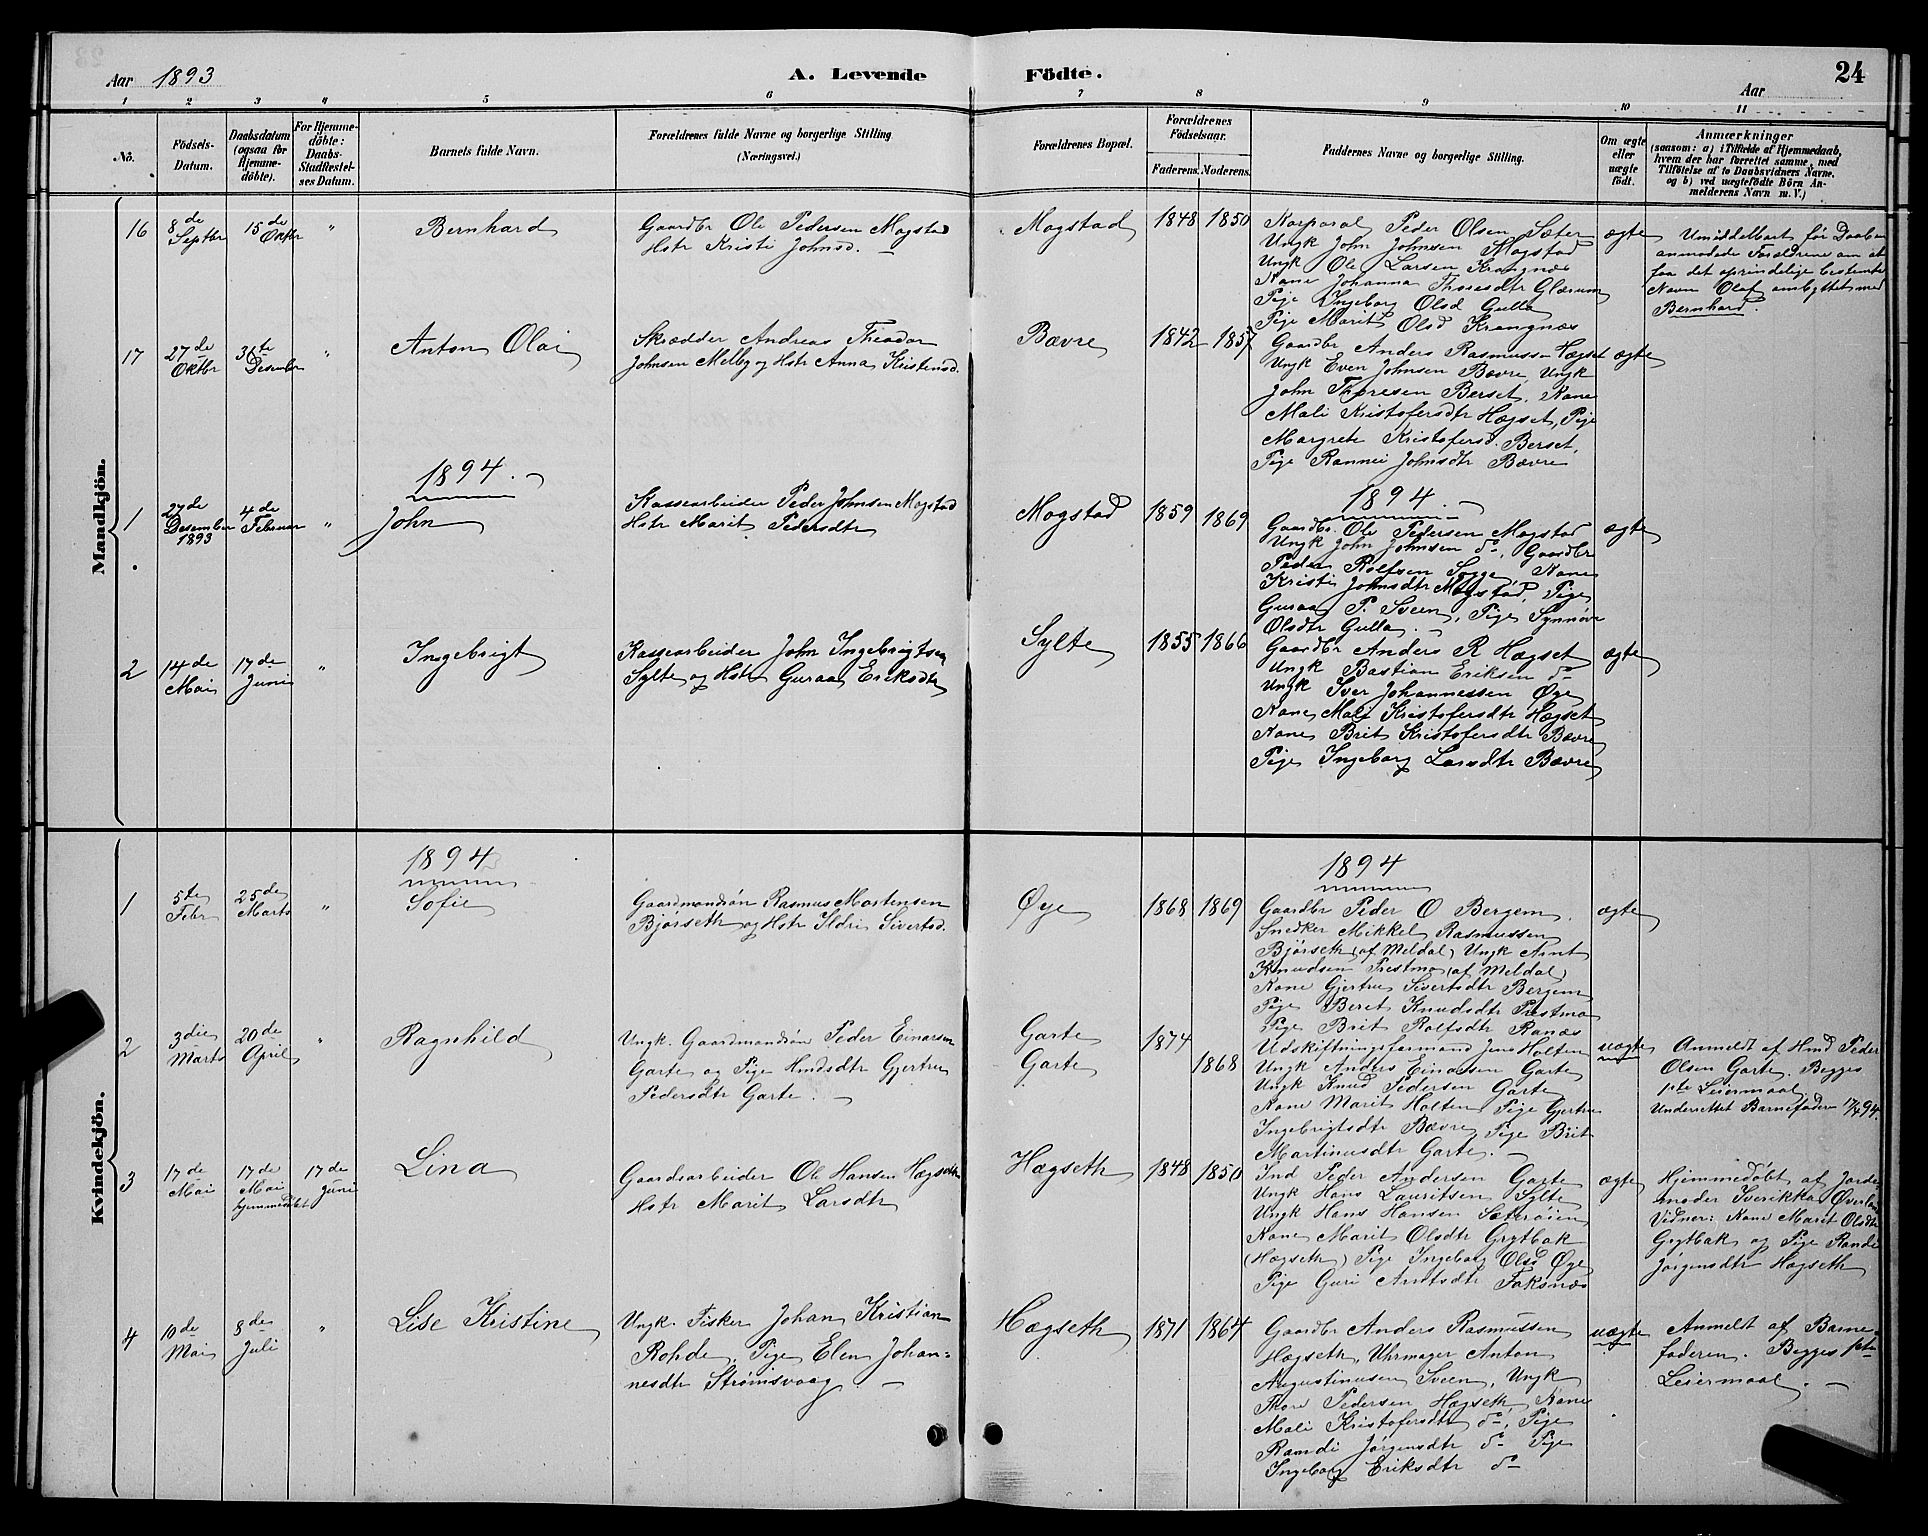 Aar 1893
A. Levende Födte.
Aar
24
1 2 3 4 5 6 7 8 9 10 11
Nô.
Födsels-Datum.
Daabsdatum (ogsaa for Hjemme-döbte).
For Hjemme-döbte: Daabs-Stadfæstel-ses Datum.
Barnets fulde Navn.
Forældrenes fulde Navne og borgerlige Stilling (Næringsvei.)
Forældrenes Bopæl.
Forældrenes Födselsaar.
Faderens. Moderens.
Faddernes Navne og borgerlige Stilling.
Om ægte eller uægte födt.
Anmærkninger
(saasom: a) i Tilfælde af Hjemmedaab,
hvem der har forrettet samme, med
Tilföielse af to Daabsvidners Navne,
og b) ved uægtefödte Börn An-
melderens Navn m. V.)
Mandkjön.
16
8de Septbr
15de Oktbr
"
Bernhard
Gaardbr Ole Pedersen Mogstad
Hstr Kristi Johnsd.
Mogstad
1848 1850
Korporal Peder Olsen Sæter
Ungk John Johnsen Mogstad
Ungk Ole Larsen Krangnæs
Kone Johanna Thoresdtr Glærum
Pige Ingeborg Olsd Gulla
Pige Marit Olsd Krangnæs
ægte
Umiddelbart før Daaben
anmodede Forældrene om at
faa det oprindelige bestemte
Navn Olaf ombyttet med
Bernhard.
17
27de Oktbr
31te Desember
"
Anton Olai
Skrædder Andreas Theodor
Johnsen Melby og Hstr Anna Kristensd.
Bævre
1842 1857
Gaardbr Anders Rasmussen Hægset
Ungk Even Johnsen Bævre, Ungk
John Thoresen Berset, Kone
Mali Kristofersdtr Hægset, Pige
Margrete Kristofersd. Berset,
Pige Rannei Johnsdtr Bævre
ægte
1894.
1894.
1
27de Desember 1893
4de Februar
"
John
Kassearbeider Peder Johnsen Mogstad
Hstr Marit Pedersdtr
Mogstad
1859 1869
Gaardbr. Ole Pedersen Mogstad
Ungk John Johnsen do, Gaardbr
Peder Rolfsen Sogge, Kone
Kristi Johnsdtr Mogstad, Pige
Guraa P. Sveen, Pige Synnøve
Olsdtr Gulla.
ægte
2
14de Mai
17de Juni
"
Ingebrigt
Kassearbeider John Ingebrigtsen
Sylte og Hstr Guraa Eriksdtr
Sylte
1855 1866
Gaardbr Anders R Hægset
Ungk Bastian Eriksen do
Ungk Iver Johannessen Øye
Kone Mali Kristofersdtr Hægset
Kone Brit Kristofersdtr Bævre
Pige Ingeborg Larsdtr Bævre
ægte
Kvindekjön.
1894
1894
1
5te Febr
25de Marts
"
Sofie
Gaardmandsøn Rasmus Mortensen
Bjørseth og Hstr Ildri Sivertsd.
Øye
1868 1869
Gaardbr Peder O Bergem,
Snedker Mikkel Rasmussen
Bjørseth (af Meldal) Ungk Arnt
Knudsen Prestmo (af Meldal)
Kone Gjertru Sivertsdtr Bergem
Pige Beret Knudsdtr Prestmo
Pige Brit Rolfsdtr Ranæs
ægte
2
3die Marts
20de April
"
Ragnhild
Ungk. Gaardmandsøn Peder Einarsen
Garte og Pige Hmdsdtr Gjertru
Pedersdtr Garte.
Garte
Garte
1874
1868
Udskiftningsformand Jens Holten
Ungk Anders Einarsen Garte
Ungk Knud Pedersen Garte
Kone Marit Holten Pige Gjertru
Ingebrigtsdtr Bævre, Pige Brit
Martinusdtr Garte.
uægte
Anmeldt af Hmd Peder
Olsen Garte. Begges
1ste Leiermaal
Underrettet Barnefaderen 17/4 94.
3
17de Mai
17de Mai hjemmedøbt
17de Juni
Lina
Gaardsarbeider Ole Hansen Hægseth
Hstr Marit Larsdtr
Hægseth
1848 1850
Ind Peder Andersen Garte
Ungk Hans Lauritsen Sylte
Ungk Hans Hansen Sæterøien
Kone Marit Olsdtr Grytbak
(Hægseth) Pige Ingeborg Olsd Øye
Pige Guri Arntsdtr Faksnæs
ægte
Hjemmedøbt af Jorde-
moder Sverikka Øverland
Vidner: Kone Marit Olsdtr
Grytbak og Pige Randi
Jørgensdtr Hægseth
4
10de Mai
8de Juli
"
Lise Kristine
Ungk. Fisker Johan Kristian
Rohde, Pige Elen Johan=
nesdtr Strømsvaag.
Hægseth
1871 1864
Gaardbr Anders Rasmussen
Hægseth, Uhrmager Anton
Augustinusen Sveen, Ungk
Thore Pedersen Hægseth, Kone
Mali Kristofersdtr do, Pige
Randi Jørgensdtr do Pige
Ingeborg Eriksdtr do
uægte
Anmeldt af Barne-
faderen. Begges 1ste
Leiermaal.